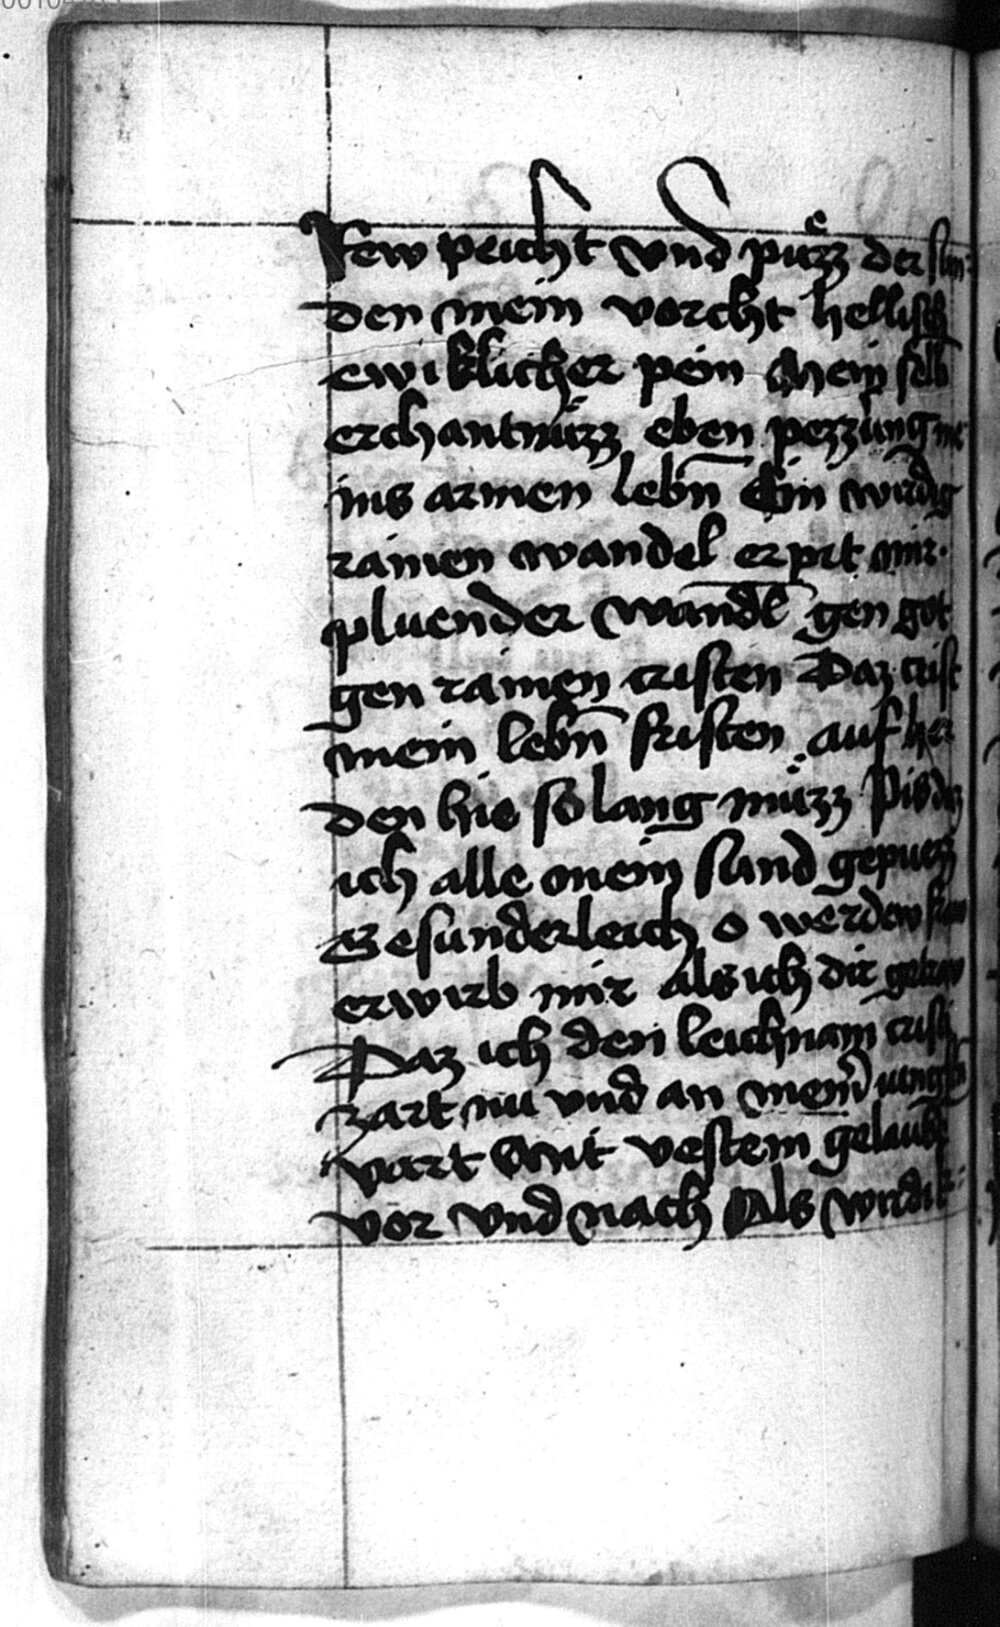 Rew peicht vnd puͤzz der sun
den mein vorcht hellisch
ewiklicher pein Mein selb
erchantnüzz eben pezzung me
ins armen lebn̄ Ein wirdig
rainen wandel erpit mir
pluender wandl̄ gen got
gen rainen cristen Daz crist
mein lebn̄ fristen auf her
den hie so lang müzz Pis daz
ich alle mein sund gepuezz
Besunderleich o werdew fraw
erwirb mir als ich dir getraw
Daz ich den leichnam cristi
zart nu vnd an meinr iungstn
vart Mit vestem gelaubn
vor vnd nach Als wirdi